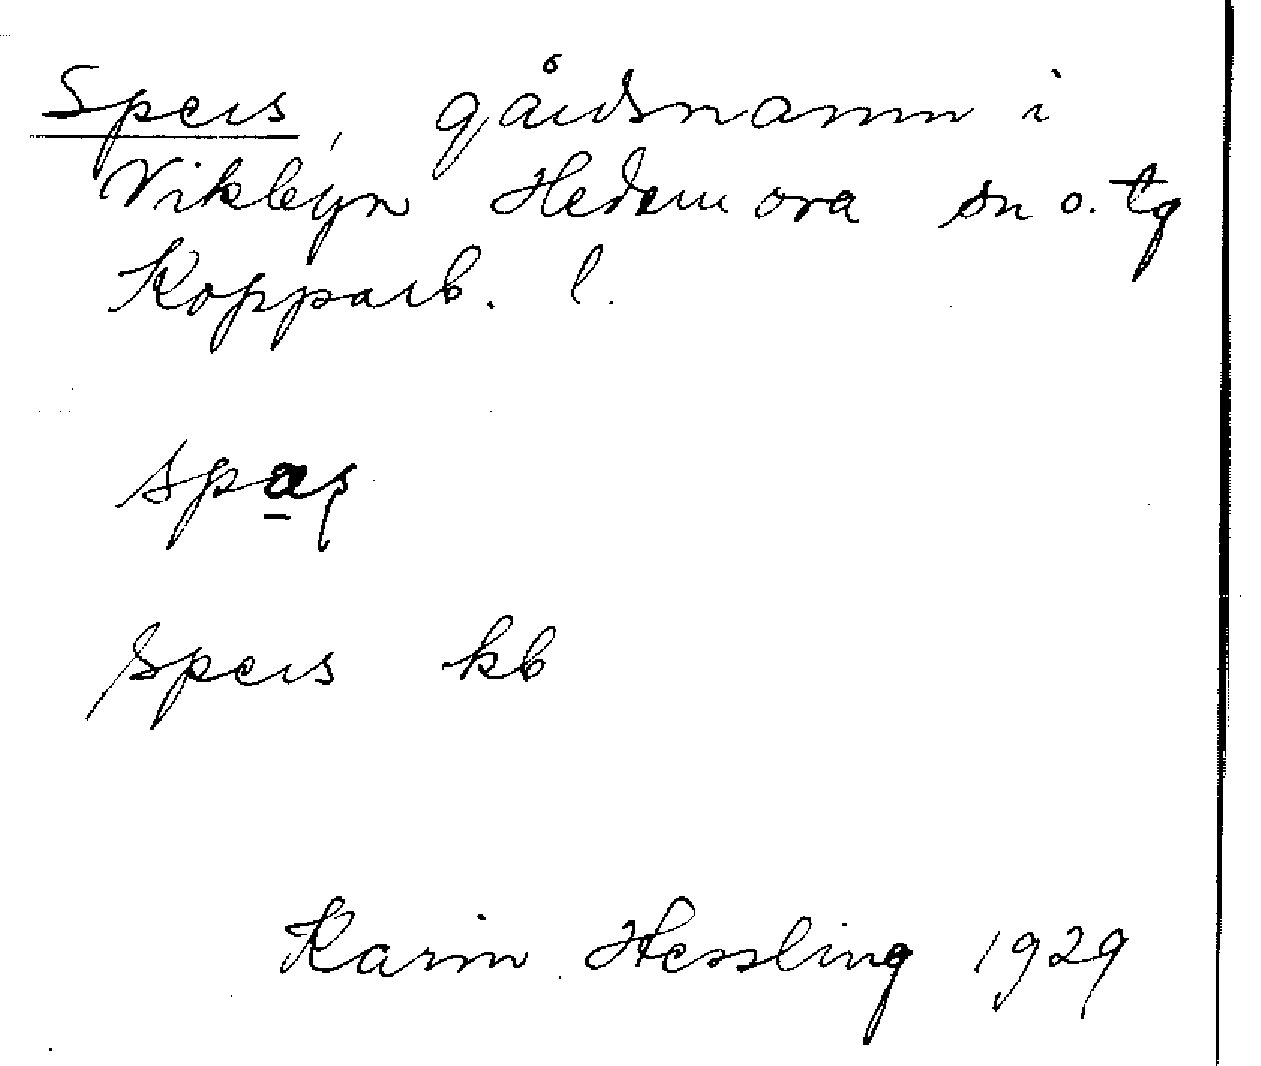 Spers, gårdsnamn i
Vikbyn Hedemora sn o. tg
Kopparb. l.
Spers kb
Karin Hessling 1929